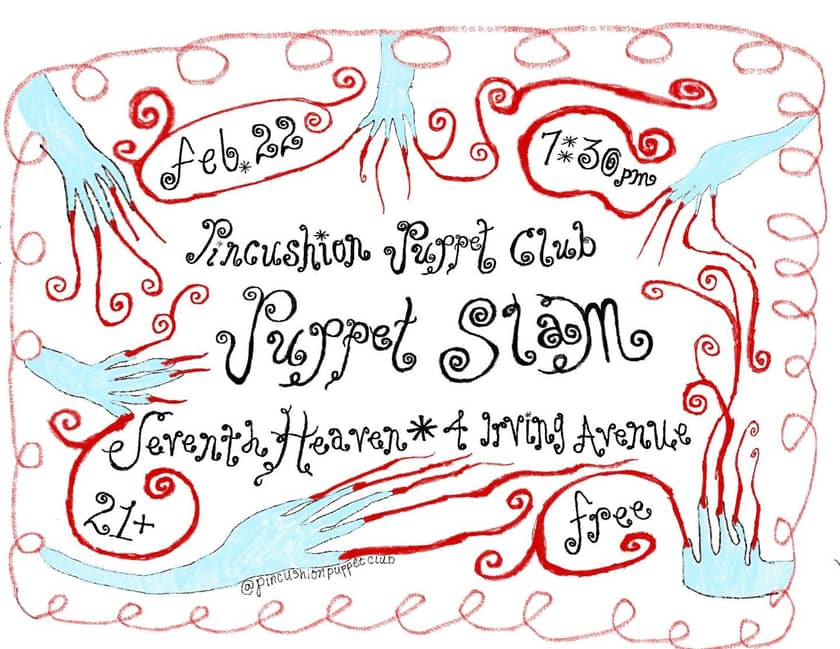 feb. 22
7*30pm
Pincushion Puppet Club
Puppet Slam
Seventh Heaven * 4 Irving Avenue
21+
free
@pincushionpuppetclub